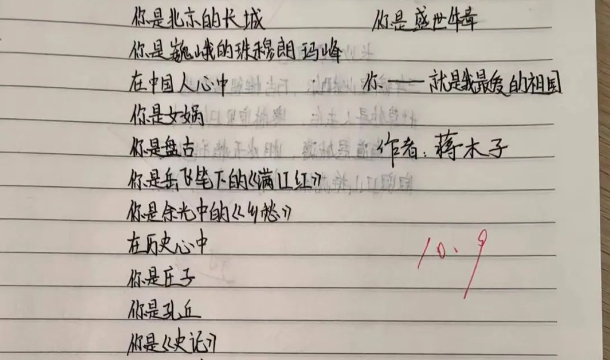 你是北京的长城
你是巍峨的珠穆朗玛峰
在中国人心中
你是女娲
你是盘古
你是岳飞笔下的《满江红》
你是余光中的《乡愁》
在历史心中
你是庄子
你是孔丘
你是《史记》
你是盛世华章
你——就是我最爱的祖国
作者：蒋木子
10.9